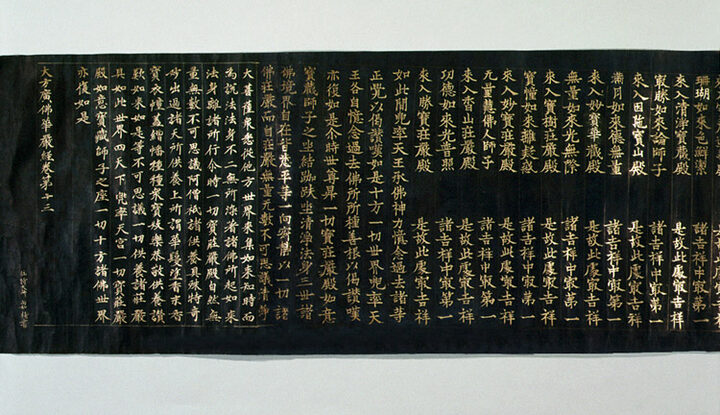 珊瑚如來色　諸吉祥中㝡第一
來入清淨寶嚴殿　是故此處㝡吉祥
如來論師子　諸吉祥中㝡第一
來入因陁寶山殿　是故此處㝡吉祥
滿月如來　諸吉祥中㝡第一
來入妙寶華藏殿　是故此處㝡吉祥
無量如來光無際　諸吉祥中㝡第一
來入寶樹莊嚴殿　是故此處㝡吉祥
寶幢如來離疑惑　諸吉祥中㝡第一
來入妙寶莊嚴殿　是故此處㝡吉祥
无量慧佛人師子　諸吉祥中㝡第一
來入香山莊嚴殿　是故此處㝡吉祥
功德如來光普照　諸吉祥中㝡第一
來入勝寶莊嚴殿　是故此處㝡吉祥
如此閒兜率天王承佛神力憶念過去諸等
正覺以偈讚嘆如是十方一切世界兜率天
王各自憶念過去佛所種善根以偈讚嘆
亦復如是尒時世尊昇一切寶莊嚴殿如意
寶藏師子之坐結跏趺坐清淨法身三世諸
佛境界自在皆悉平等一向安樂以一切諸
佛莊嚴而自莊嚴無量无數不可思議清淨
大菩薩衆悉從他方世界來集如來尒時而
為說法法身不二無所染者諸佛所起如來
法身離諸所行令時一切寶莊嚴殿自然無
量無數不可思議阿僧祇諸供養具殊特奇
妙出過諸天所供養上所謂華鬘塗香末香
寶衣幢蓋繒幡種種衆寶妓樂恭敬供養讚
歎如來如是等不可思議一切供養諸莊嚴
具如此世界四天下兜率天宮一切寶莊嚴
殿如意寶藏師子之座一切十方諸佛世界
亦復如是
大方廣佛華嚴經卷第十三